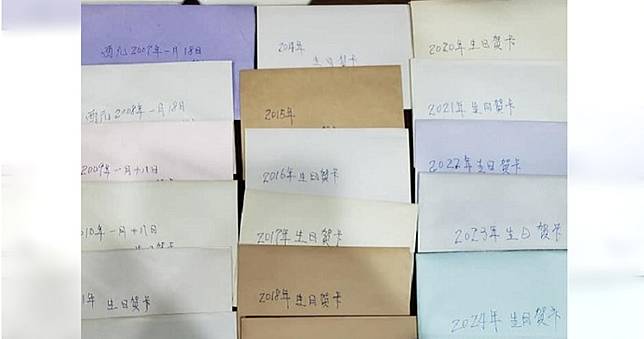 西元2007年一月18日
西元2008年一月18日
2009年一月十八日
010年一月十八日
生日賀卡
1年 生日賀卡
2014年
生日賀卡
2015年
2016年生日賀卡
2017年生日賀卡
2018年生日賀卡
2020年生日賀卡
2021年生日賀卡
2022年生日賀卡
2023年生日賀卡
2024年生日賀卡